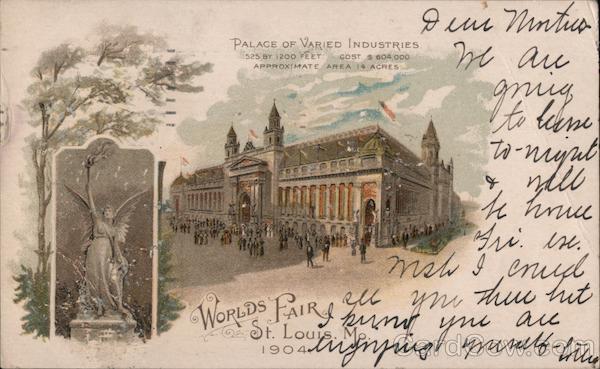 PALACE OF VARIED INDUSTRIES
525 BY 1200 FEET COST $ 604,000
APPROXIMATE AREA 14 ACRES
Dear
We are
going
to leave
to-night
& will
be home
Fri. eve.
Wish I could
see you there but
I know you are
enjoying yourself
WORLDS' FAIR
St. Louis, Mo.
1904
CardCow.com